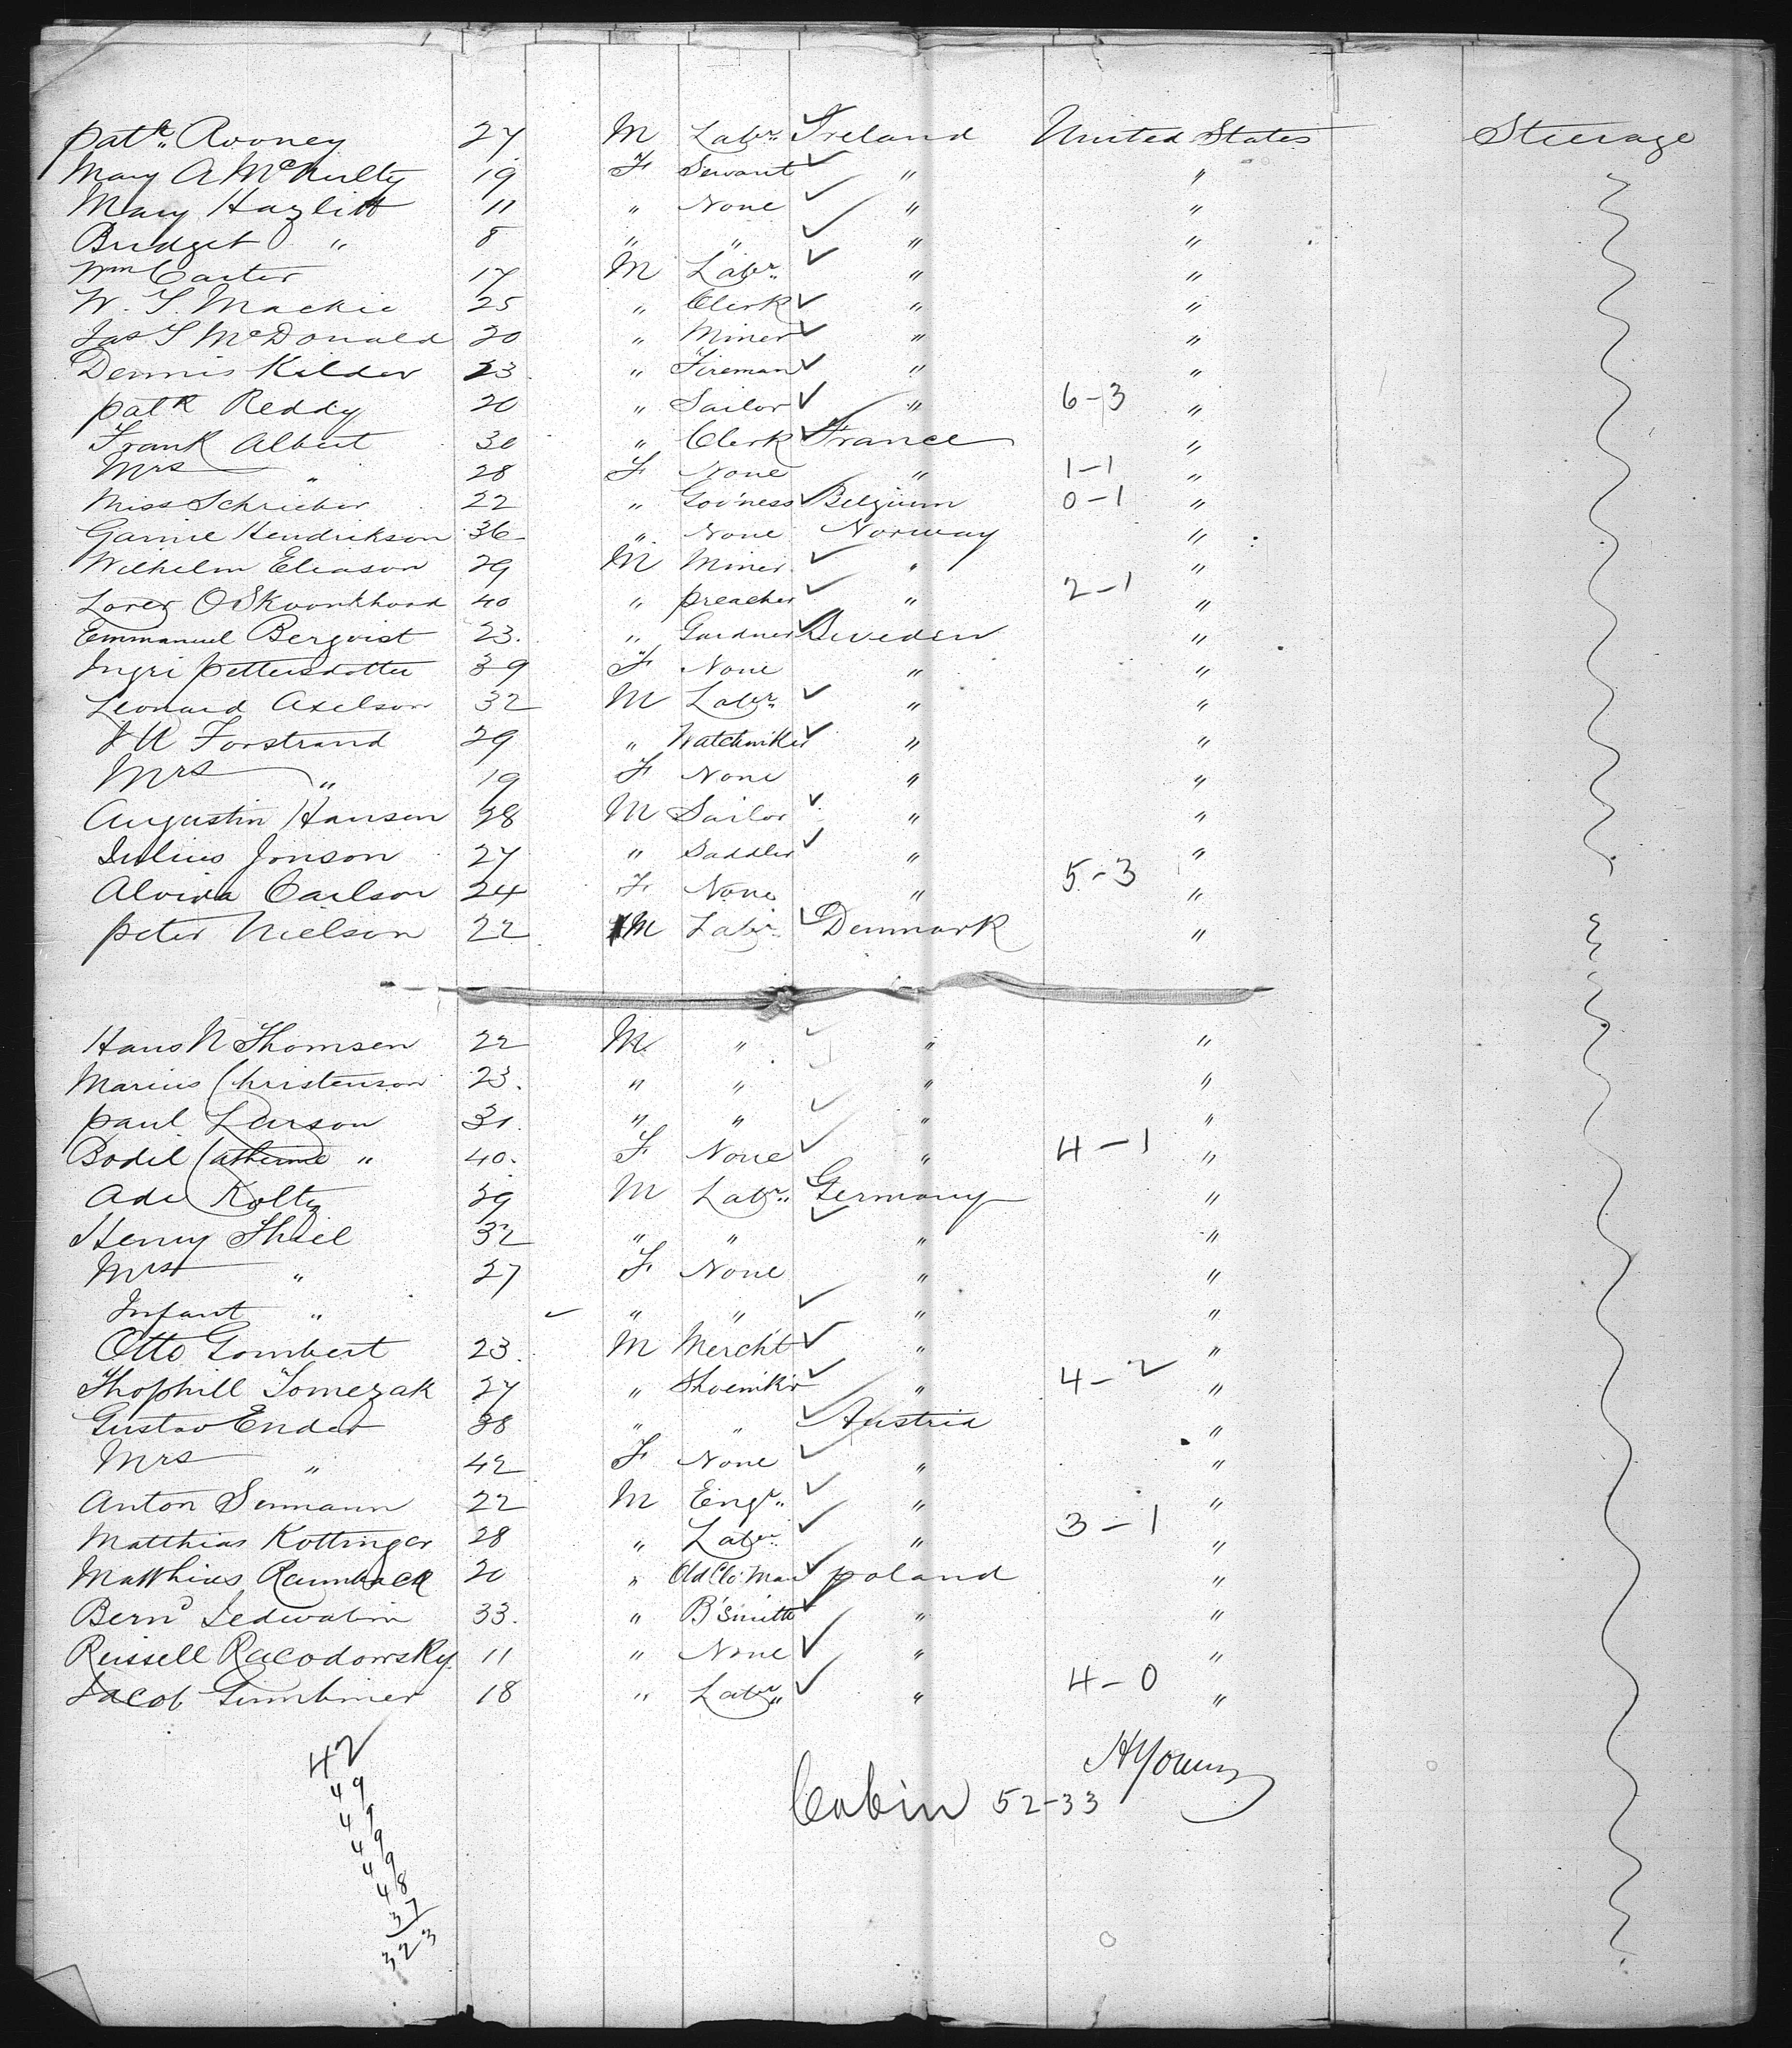 Patk. Rooney 27 M Labr. Ireland United States Steerage
Mary A McNulty 19 F Servant " "
Mary Hazlitt 11 " None " "
Bridget " 8 " " " "
Wm Carter 17 M Labr. " "
W. S. Mackie 25 " Clerk " "
Jas S McDonald 20 " Miner " "
Dennis Kilder 23 " Fireman " "
Patk Reddy 20 " Sailor " 6-3 "
Frank Albert 30 " Clerk France "
Mrs " 28 F None " 1-1 "
Miss Schrieber 22 " Gov'ness Belgium 0-1 "
Garnie Hendrikson 36 " None Norway "
Wilhelm Eliason 29 M Miner " "
40 " preacher " 2-1 "
Emmanuel Berqvist 23. " Gardner Sweden "
Ingri Pettersdotter 39 F None " "
Leonard Axelson 32 M Labr. " "
Forstrand 29 " Watchmker " "
Mrs " 19 F None " "
Augustin Hansen 28 M Sailor " "
Julius Jonson 27 " Saddler " "
Alvida Carlson 24 F None " 5-3 "
Peter Nielson 22 M Labr. Denmark "
Hans N Thomsen 22 M " " "
Marius Christenson 23. " " " "
Paul Larson 31. " " " "
Bodil Catherine " 40. F None " 4-1 "
Ade Koltz 29 M Labr. Germany "
Henry Thiel 32 " " " "
Mrs " 27 F None " "
Infant " " " " "
Otto Gombert 23. M Mercht " "
Thophill Tomezak 27 " Shoemkr " 4-2 "
Gustav Ender 38 " " Austria "
Mrs " 42 F None " "
Anton Semann 22 M Engr. " "
Matthias Kottinger 28 " Labr. " 3-1 "
Matthias Raumback 20 " Old Clo. Man Poland "
Bernd 33. " B'Smith " "
Reissell Racodowsky 11 " None " "
Jacob Gumbiner 18 " Labr. " 4-0 "
42
49
49
49
49
48
37
323
Cabin 52-33